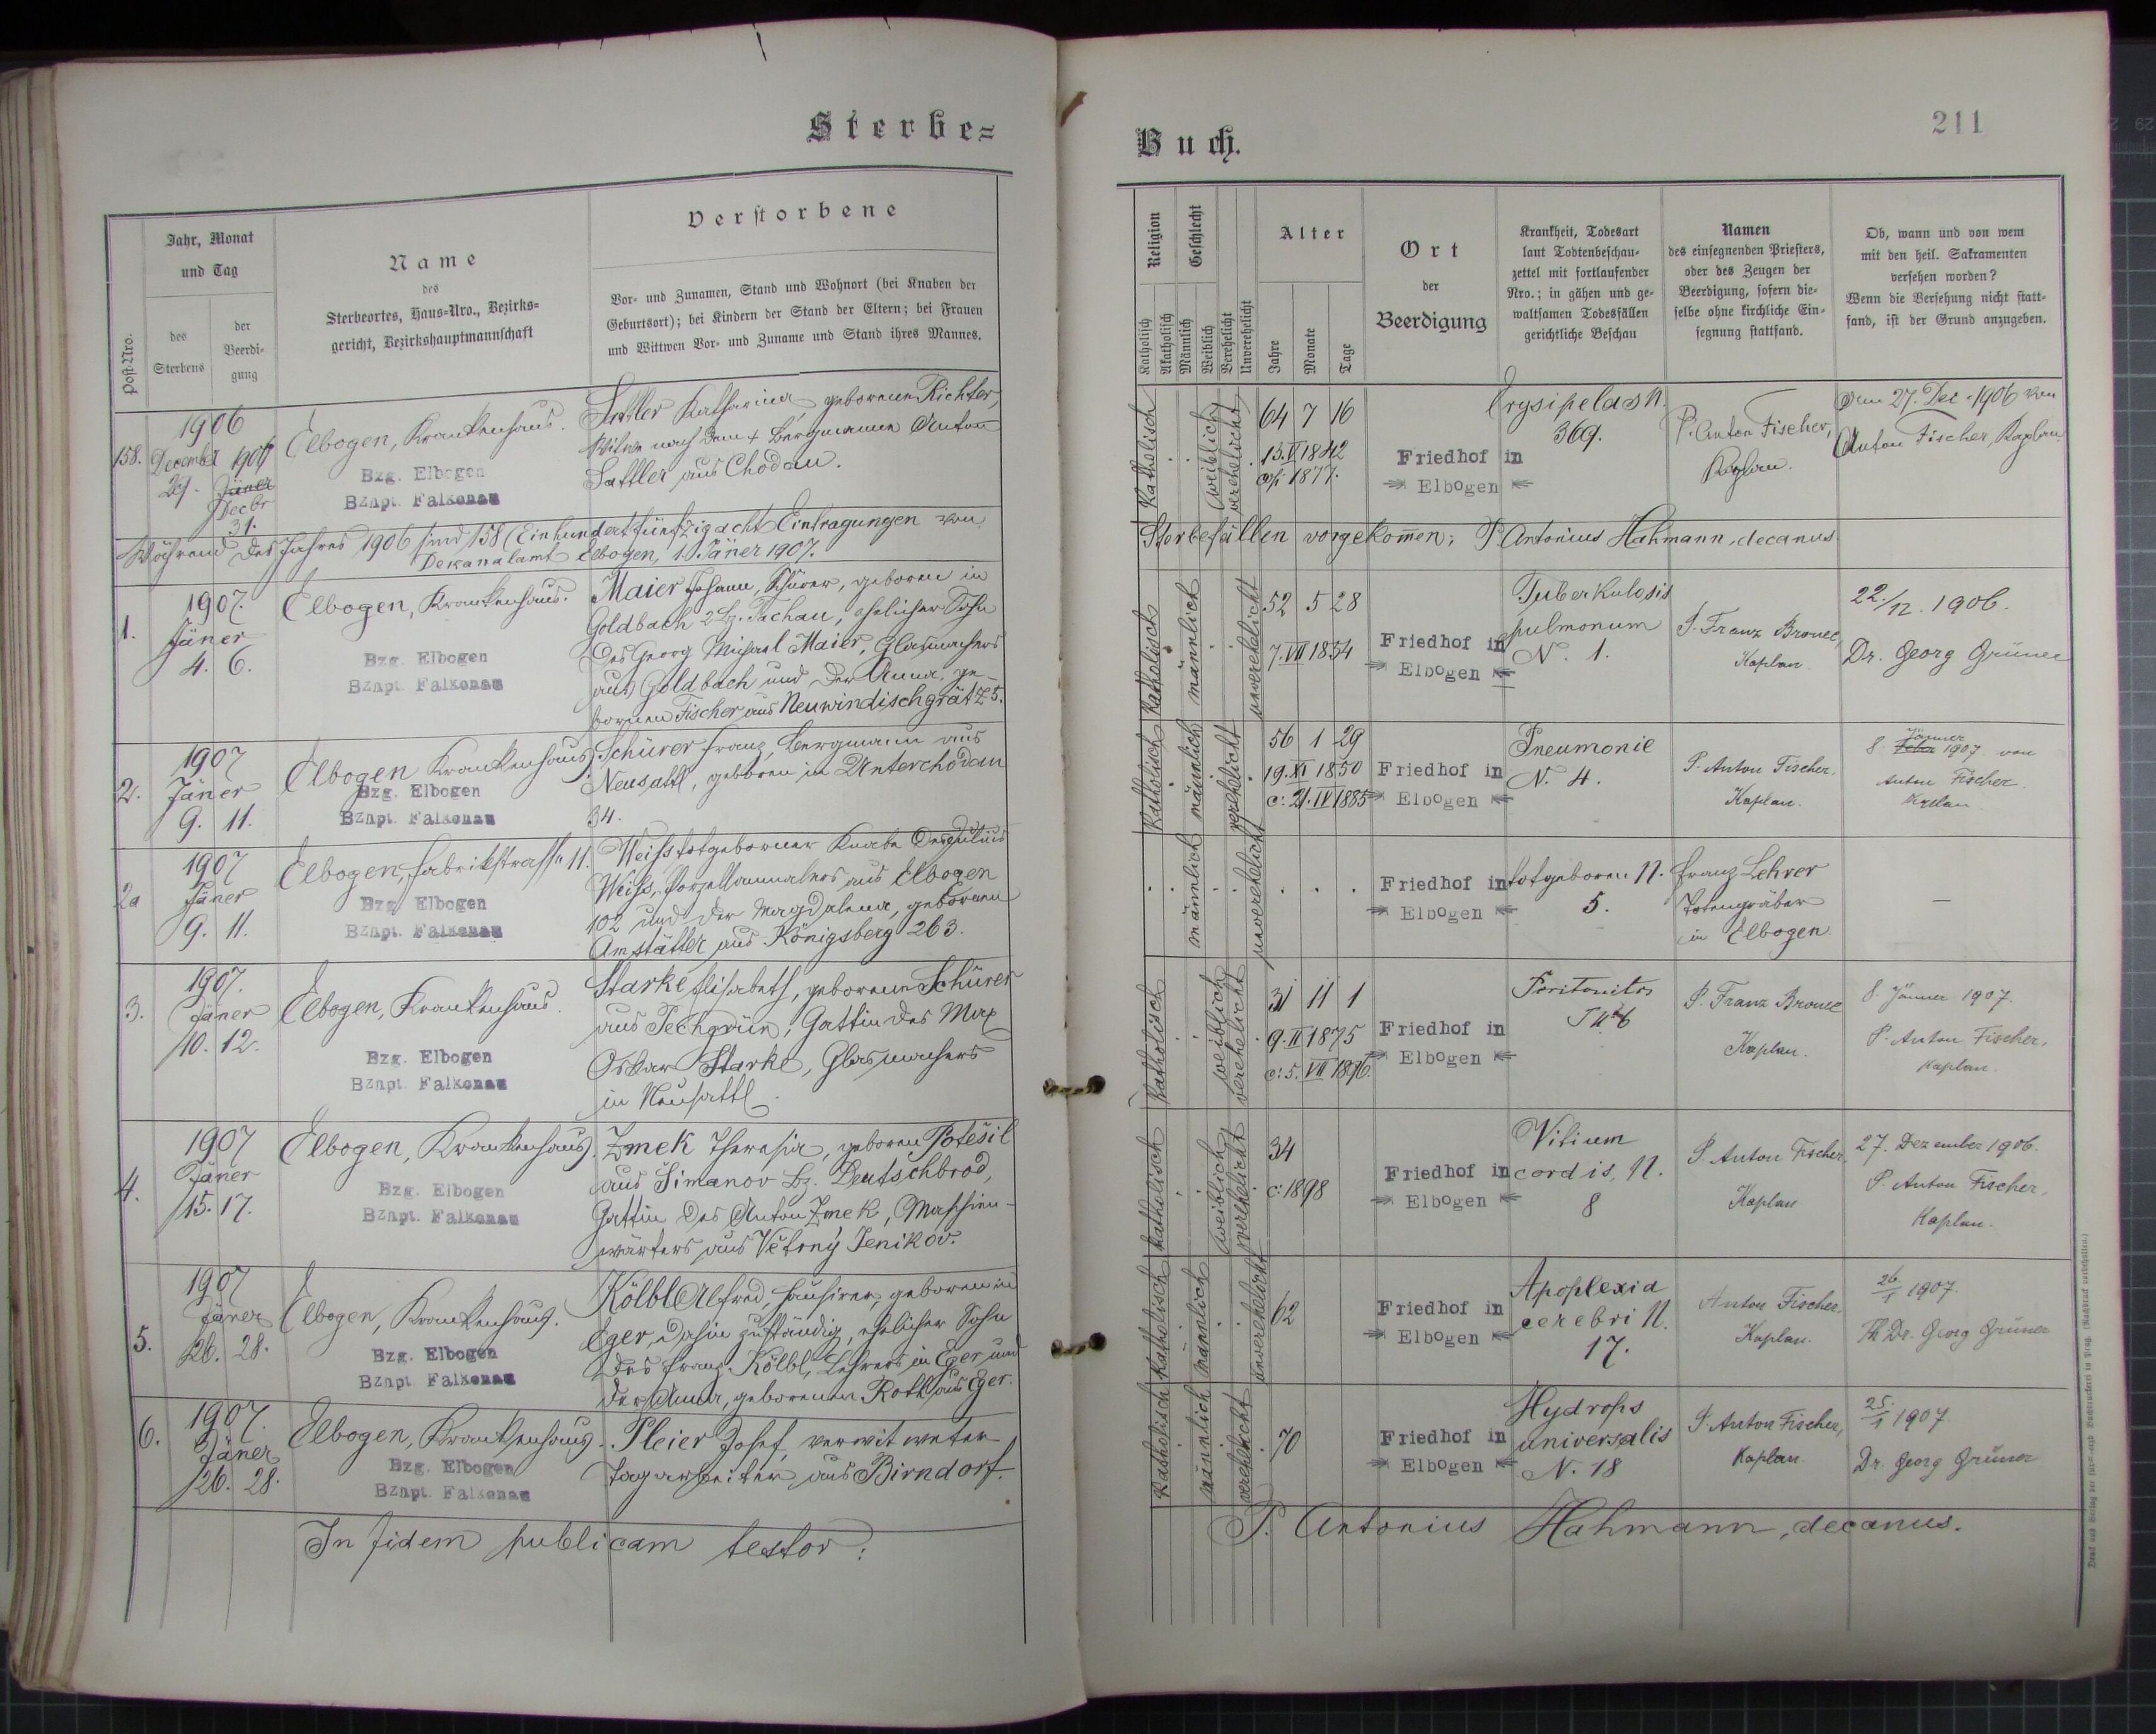 Sterbe=
Post-Nro.
Jahr, Monat
und Tag
des
Sterbens
der
Beerdi-
gung
Name
des
Sterbeortes, Haus-Nro., Bezirks-
gericht, Bezirkshauptmannschaft
Verstorbene
Vor- und Zunamen, Stand und Wohnort (bei Knaben der
Geburtsort); bei Kindern der Stand der Eltern; bei Frauen
und Wittwen Vor- und Zuname und Stand ihres Mannes.
158.
1906
December 1907
29. Jäner
Decbr
31.
Elbogen, Krankenhaus.
Bzg. Elbogen
Bznpt. Falkenau
Sattler Katharina, geborene Richter,
Witwe nach dem + Bergmanne Anton
Sattler aus Chodau.
Während des Jahres 1906 sind 158 (Einhundertfünfzigacht Eintragungen von
Dekanalamt Elbogen, 1. Jäner 1907.
1.
1907.
Jäner
4. 6.
Elbogen, Krankenhaus.
Bzg. Elbogen
Bznpt. Falkenau
Maier Johann, Schürer, geboren in
Goldbach 2 Bz. Tachau, ehelicher Sohn
des Georg Michael Maier, Glasmachers
aus Goldbach und der Anna, ge-
bornen Fischer aus Neuwindischgrätz 5.
2.
1907
Jäner
9. 11.
Elbogen Krankenhaus
Bzg. Elbogen
Bznpt. Falkenau
Schürer Franz, Bergmann aus
Neusattl, geboren in Unterchodau
34.
2a
1907
Jäner
9. 11.
Elbogen, Fabrikstrasse 11.
Bzg. Elbogen
Bznpt. Falkenau
Weiss totgeborener Knabe des Julius
Weiss, Porzellanmalers aus Elbogen
102 und der Magdalena, gebornen
Amstätter aus Königsberg 263.
3.
1907.
Jäner
10. 12.
Elbogen, Krankenhaus.
Bzg. Elbogen
Bznpt. Falkenau
Starke Elisabeth, geborene Schürer
aus Zechgrün, Gattin des Max
Oskar Starke, Glasmachers
in Neusattl.
4.
1907
Jäner
15. 17.
Elbogen, Krankenhaus.
Bzg. Elbogen
Bznpt. Falkenau
Zmek Theresia, geboren Potěšil
aus Simanov Bz. Deutschbrod,
Gattin des Anton Zmek, Maschien-
wärters aus Větrný Jenikov.
5.
1907
Jäner
26. 28.
Elbogen, Krankenhaus.
Bzg. Elbogen
Bznpt. Falkenau
Kölbl Alfred, Hausirer, geboren in
Eger, dahin zuständig, ehelicher Sohn
des Franz Kölbl, Lehrers in Eger und
der Anna, geborenen Roth aus Eger.
6.
1907.
Jäner
26. 28.
Elbogen, Krankenhaus.
Bzg. Elbogen
Bznpt. Falkenau
Pleier Josef, verwitweter
Tagarbeiter aus Birndorf.
In fidem publicam testor:
Buch.
211
Religion
Katholisch
Akatholisch
Geschlecht
Männlich
Weiblich
Verehelicht
Unverehelicht
Alter
Jahre
Monate
Tage
Ort
der
Beerdigung
Krankheit, Todesart
laut Todtenbeschau-
zettel mit fortlaufender
Nro.; in gähen und ge-
waltsamen Todesfällen
gerichtliche Beschau
Namen
des einsegnenden Priesters,
oder des Zeugen der
Beerdigung, sofern die-
selbe ohne kirchliche Ein-
segnung stattfand.
Ob, wann und von wem
mit den heil. Sakramenten
versehen worden?
Wenn die Versehung nicht statt-
fand, ist der Grund anzugeben.
katholisch
weiblich
verehelicht
64 7 16
13. V 1842
cop. 1877.
Friedhof in
Elbogen
Erysipelas N.
369.
P. Anton Fischer,
Kaplan.
am 27. Dec. 1906 von
Anton Fischer, Kaplan.
Sterbefällen vorgekommen; P. Antonius Hahmann, decanus
katholisch
männlich
unverehelicht
52 5 28
7. VII 1854
Friedhof in
Elbogen
Tuberkulosis
pulmonum
N. 1.
P. Franz Brouce,
Kaplan.
22./12. 1906.
Dr. Georg Grüner
katholisch
männlich
verehelicht
56 1 29
19. XI 1850
c: 21. IV 1885
Friedhof in
Elbogen
Pneumonie
N. 4.
P. Anton Fischer.
Kaplan.
Jänner
8. 1907 von
Anton Fischer
Kaplan
männlich
unverehelicht
Friedhof in
Elbogen
totgeboren N.
5.
Franz Lehrer
Totengräber
in Elbogen.
—
katholisch
weiblich
verehelicht
31 11 1
9. II 1875
c: 5. VII 1896.
Friedhof in
Elbogen
Peritonitis
P. Franz Brouce
Kaplan.
8. Jänner 1907.
P. Anton Fischer,
Kaplan.
katholisch
weiblich
verehelicht
34
c: 1898
Friedhof in
Elbogen
Vitium
cordis, N.
8
P. Anton Fischer,
Kaplan
27. Dezember 1906.
P. Anton Fischer,
Kaplan.
katholisch
männlich
unverehelicht
62
Friedhof in
Elbogen
Apoplexia
cerebri N.
17.
Anton Fischer,
Kaplan.
26/1 1907.
Dr. Georg Grüner
katholisch
männlich
verehelicht
70
Friedhof in
Elbogen
Hydrops
universalis
N. 18
P. Anton Fischer,
Kaplan.
25./1 1907.
Dr. Georg Grüner
P. Antonius Hahmann, decanus.